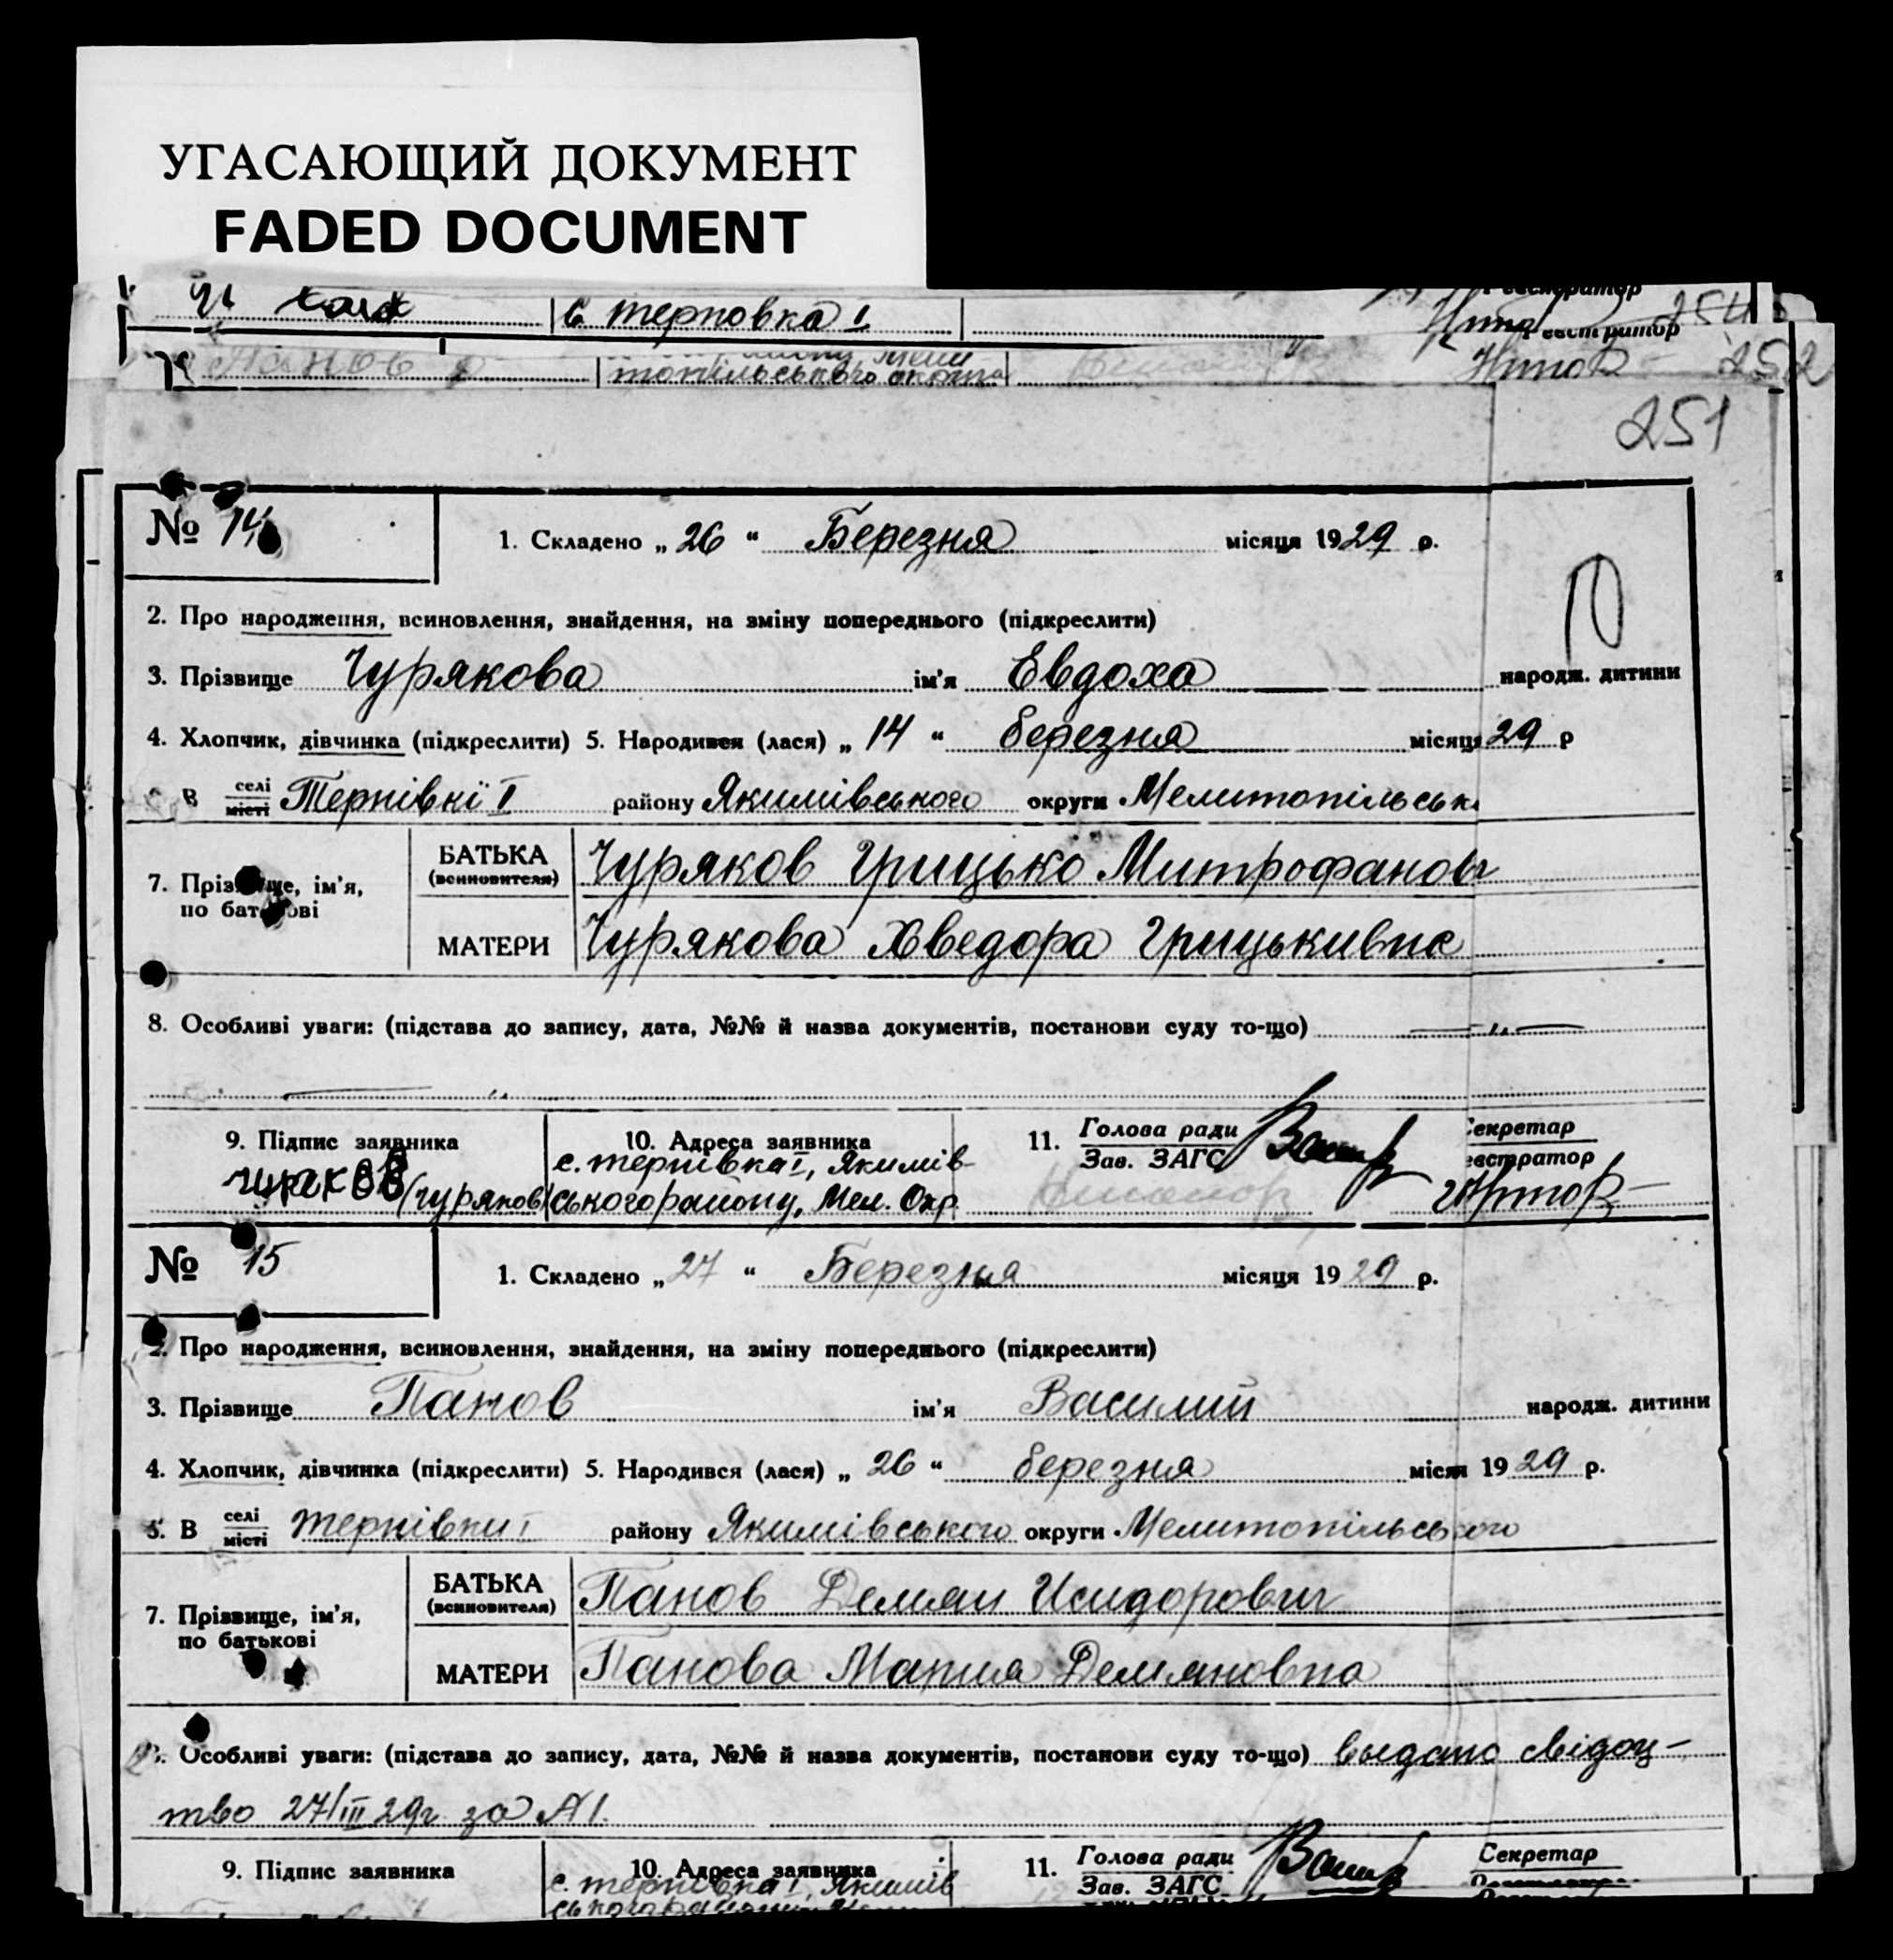 УГАСАЮЩИЙ ДОКУМЕНТ
FADED DOCUMENT
с терновка I 254
Реєстратор
Панов
топільського округа 252
251
№ 14 1. Складено „ 26 “ Березня місяця 1929 р.
2. Про народження, всиновлення, знайдення, на зміну попереднього (підкреслити)
3. Прізвище Чурякова ім'я Евдоха народж. дитини
4. Хлопчик, дівчинка (підкреслити) 5. Народився (лася) „ 14 “ березня місяця 29 р
В селі місті Тернівкі I району Якимівського округи Мелитопільськ
7. Прізвище, ім'я, по батькові БАТЬКА (всиновителя) Чуряков Грицько Митрофанов
МАТЕРИ Чурякова Хведора Грицькивна
8. Особливі уваги: (підстава до запису, дата, №№ й назва документів, постанови суду то-що) — „ —
— „
9. Підпис заявника 10. Адреса заявника 11. Голова ради Секретар
с. тернівка I, Якимів- Зав. ЗАГС
(Чуряков) ського району, Мел. Окр.
№ 15 1. Складено „ 27 “ Березня місяця 1929 р.
2. Про народження, всиновлення, знайдення, на зміну попереднього (підкреслити)
3. Прізвище Панов ім'я Василий народж. дитини
4. Хлопчик, дівчинка (підкреслити) 5. Народився (лася) „ 26 “ березня місяя 1929 р.
В селі місті тернівки I району Якимівського округи Мелитопільського
7. Прізвище, ім'я, по батькові БАТЬКА (всиновителя) Панов Демян Исидорович
МАТЕРИ Панова Мария Демяновна
Особливі уваги: (підстава до запису, дата, №№ й назва документів, постанови суду то-що) выдано свідоц-
тво 27/III 29г. за № 1.
9. Підпис заявника 10. Адреса заявника 11. Голова ради Секретар
с. тернівка I, Якимів Зав. ЗАГС